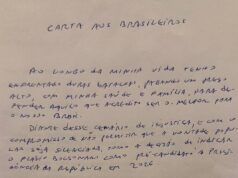 CARTA AOS BRASILEIROS
AO LONGO DA MINHA VIDA TENHO
ENFRENTADO DURAS BATALHAS, PAGANDO UM PREÇO
ALTO, COM MINHA SAÚDE E FAMÍLIA, PARA DE-
FENDER AQUILO QUE ACREDITO SER O MELHOR PARA
O NOSSO BRASIL.
DIANTE DESSE CENÁRIO DE INJUSTIÇA, E COM O
COMPROMISSO DE NÃO PERMITIR QUE A VONTADE POPULAR
SEJA SILENCIADA, TOMO A DECISÃO DE INDICAR
O FLÁVIO BOLSONARO COMO PRÉ-CANDIDATO A PRESI-
DÊNCIA DA REPÚBLICA EM 2026